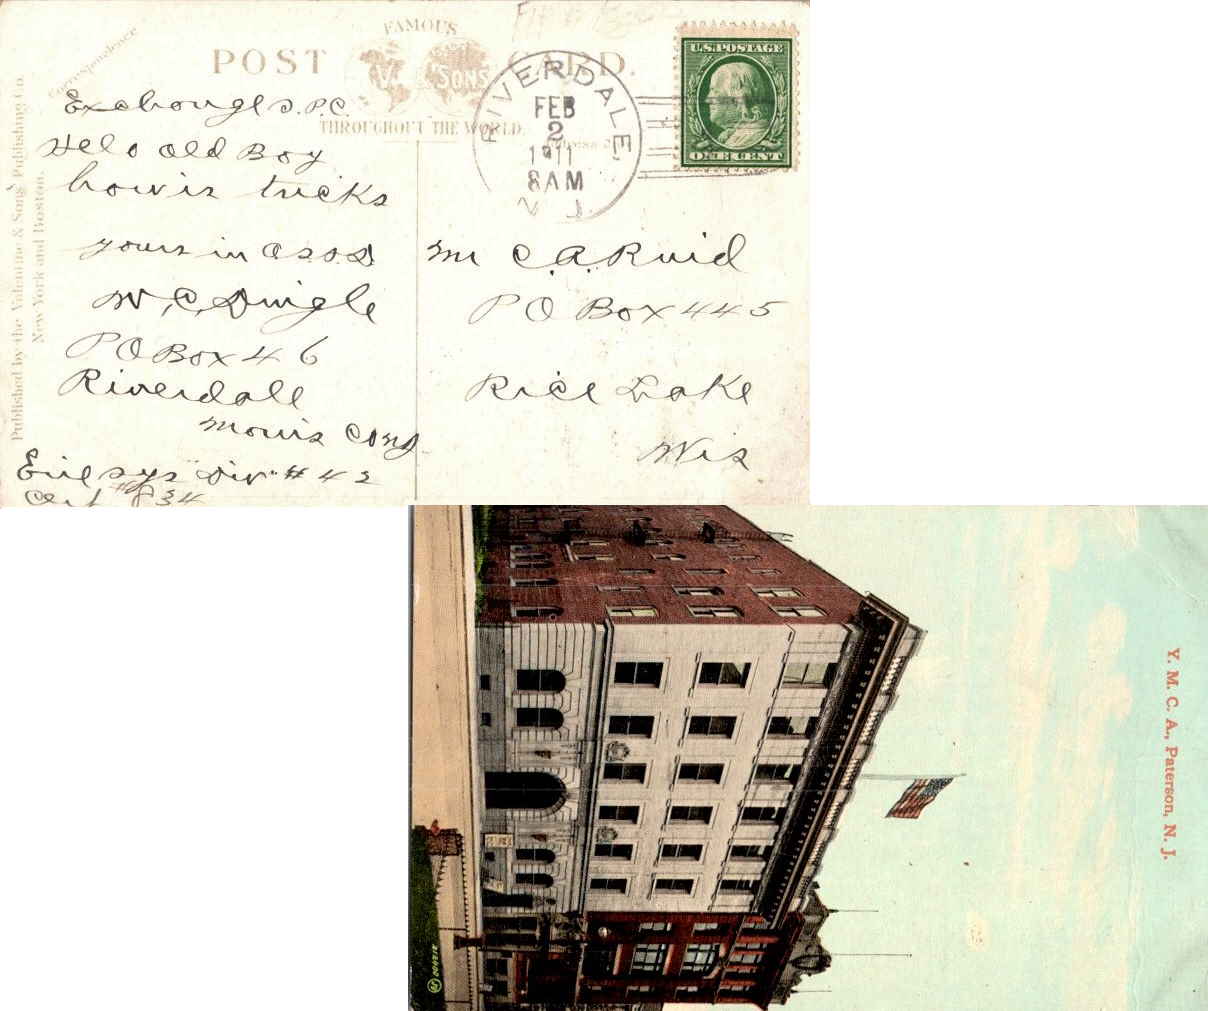 Correspondence
FAMOUS
POST CARD.
V. & SONS
THROUGHOUT THE WORLD.
Published by the Valentine & Sons' Publishing Co.
New York and Boston.
RIVERDALE
FEB
2
1911
8 AM
N. J.
U.S. POSTAGE
ONE CENT
Exchange S. P.C.
Helo old Boy
how is tricks
yours in
W. C. Dingle
PO Box 46
Riverdale
Morris Co NJ
Div. # 42
Cert # 834
Mr C. A. Ruid
PO Box 445
Rice Lake
Wis
Y. M. C. A., Paterson, N. J.